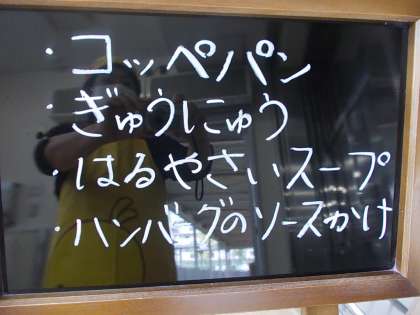 ・コッペパン
・ぎゅうにゅう
・はるやさいスープ
・ハンバグのソースかけ